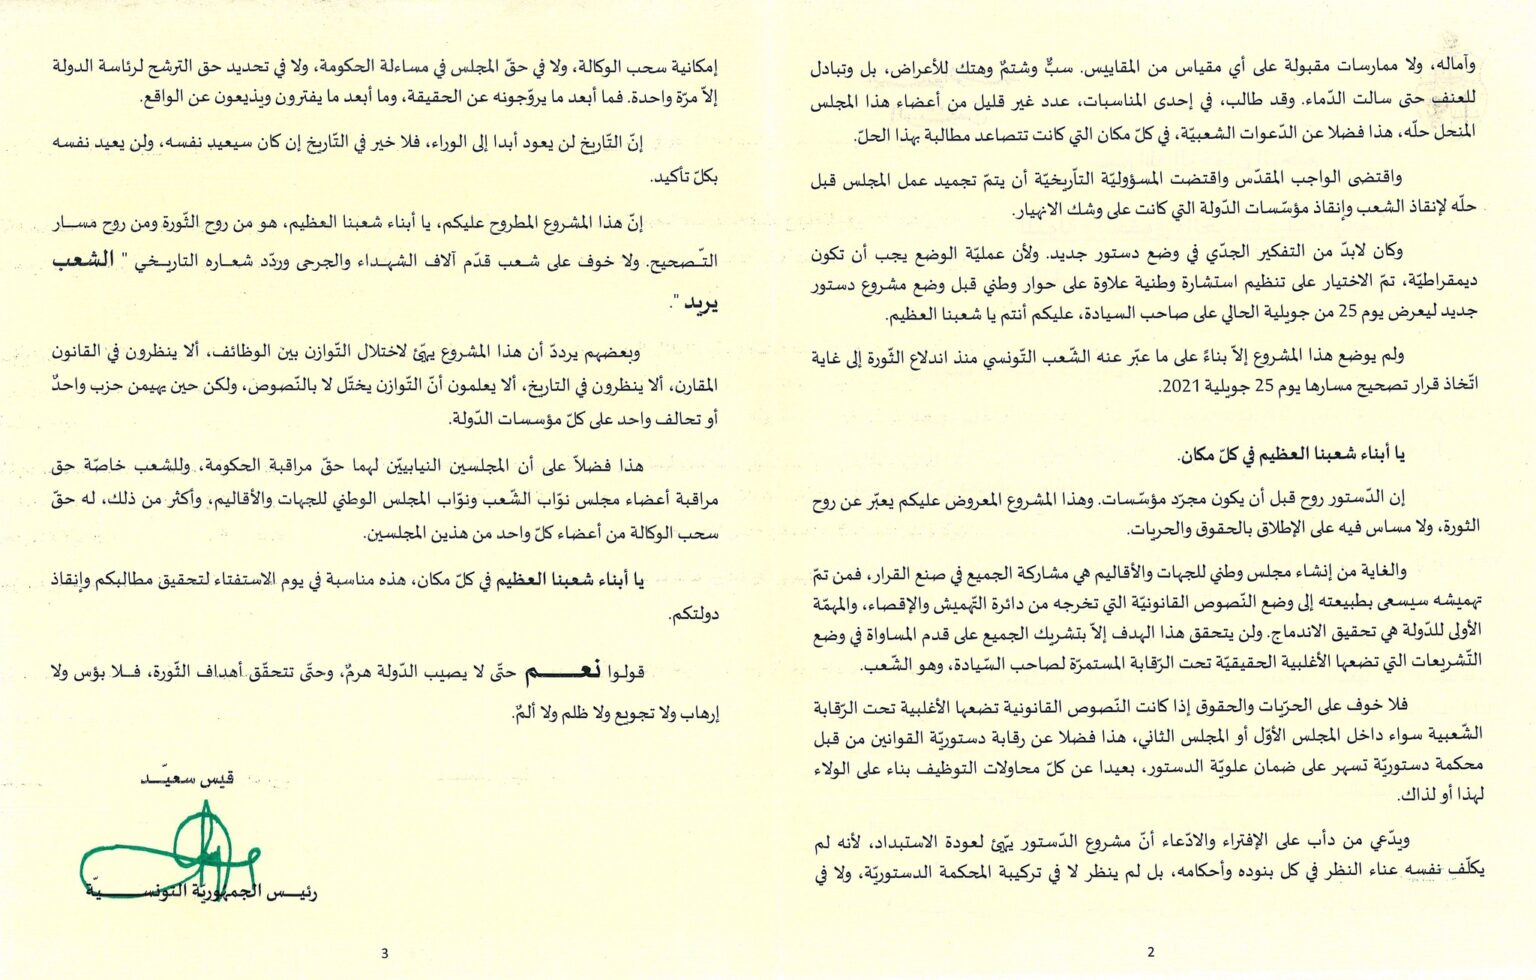 وآماله، ولا ممارسات مقبولة على أي مقياس من المقاييس. سبٌّ وشتمٌ وهتك للأعراض، بل وتبادل
للعنف حتى سالت الدّماء. وقد طالب، في إحدى المناسبات، عدد غير قليل من أعضاء هذا المجلس
المنحل حلّه، هذا فضلا عن الدّعوات الشعبيّة، في كلّ مكان التي كانت تتصاعد مطالبة بهذا الحلّ.
واقتضى الواجب المقدّس واقتضت المسؤوليّة التاّريخيّة أن يتمّ تجميد عمل المجلس قبل
حلّه لإنقاذ الشعب وإنقاذ مؤسّسات الدّولة التي كانت على وشك الانهيار.
وكان لابدّ من التفكير الجدّي في وضع دستور جديد. ولأن عمليّة الوضع يجب أن تكون
ديمقراطيّة، تمّ الاختيار على تنظيم استشارة وطنية علاوة على حوار وطني قبل وضع مشروع دستور
جديد ليعرض يوم 25 من جويلية الحالي على صاحب السيادة، عليكم أنتم يا شعبنا العظيم.
ولم يوضع هذا المشروع إلاّ بناءً على ما عبّر عنه الشّعب التّونسي منذ اندلاع الثّورة إلى غاية
اتّخاذ قرار تصحيح مسارها يوم 25 جويلية 2021.
يا أبناء شعبنا العظيم في كلّ مكان.
إن الدّستور روح قبل أن يكون مجرّد مؤسّسات. وهذا المشروع المعروض عليكم يعبّر عن روح
الثورة، ولا مساس فيه على الإطلاق بالحقوق والحريات.
والغاية من إنشاء مجلس وطني للجهات والأقاليم هي مشاركة الجميع في صنع القرار، فمن تمّ
تهميشه سيسعى بطبيعته إلى وضع النّصوص القانونيّة التي تخرجه من دائرة التّهميش والإقصاء، والمهمّة
الأولى للدّولة هي تحقيق الاندماج. ولن يتحقق هذا الهدف إلاّ بتشريك الجميع على قدم المساواة في وضع
التّشريعات التي تضعها الأغلبية الحقيقيّة تحت الرّقابة المستمرّة لصاحب السّيادة، وهو الشّعب.
فلا خوف على الحرّيات والحقوق إذا كانت النّصوص القانونية تضعها الأغلبية تحت الرّقابة
الشّعبية سواء داخل المجلس الأوّل أو المجلس الثاني، هذا فضلا عن رقابة دستوريّة القوانين من قبل
محكمة دستوريّة تسهر على ضمان علويّة الدستور، بعيدا عن كلّ محاولات التوظيف بناء على الولاء
لهذا أو لذاك.
ويدّعي من دأب على الإفتراء والادّعاء أنّ مشروع الدّستور يهيّئ لعودة الاستبداد، لأنه لم
يكلّف نفسه عناء النظر في كل بنوده وأحكامه، بل لم ينظر لا في تركيبة المحكمة الدستوريّة، ولا في
2
إمكانية سحب الوكالة، ولا في حقّ المجلس في مساءلة الحكومة، ولا في تحديد حق الترشح لرئاسة الدولة
إلاّ مرّة واحدة. فما أبعد ما يروّجونه عن الحقيقة، وما أبعد ما يفترون ويذيعون عن الواقع.
إنّ التّاريخ لن يعود أبدا إلى الوراء، فلا خير في التّاريخ إن كان سيعيد نفسه، ولن يعيد نفسه
بكلّ تأكيد.
إنّ هذا المشروع المطروح عليكم، يا أبناء شعبنا العظيم، هو من روح الثّورة ومن روح مسار
التّصحيح. ولا خوف على شعب قدّم آلاف الشهداء والجرحى وردّد شعاره التاريخي " الشعب
يريد ".
وبعضهم يرددّ أن هذا المشروع يهيّئ لاختلال التّوازن بين الوظائف، ألا ينظرون في القانون
المقارن، ألا ينظرون في التاريخ، ألا يعلمون أنّ التّوازن يختّل لا بالنّصوص، ولكن حين يهيمن حزب واحدٌ
أو تحالف واحد على كلّ مؤسسات الدّولة.
هذا فضلاّ على أن المجلسين النيابييّن لهما حقّ مراقبة الحكومة، وللشعب خاصّة حق
مراقبة أعضاء مجلس نوّاب الشّعب ونوّاب المجلس الوطني للجهات والأقاليم، وأكثر من ذلك، له حقّ
سحب الوكالة من أعضاء كلّ واحد من هذين المجلسين.
يا أبناء شعبنا العظيم في كلّ مكان، هذه مناسبة في يوم الاستفتاء لتحقيق مطالبكم وإنقاذ
دولتكم.
قولوا نعم حتّى لا يصيب الدّولة هرمٌ، وحتّى تتحقّق أهداف الثّورة، فلا بؤس ولا
إرهاب ولا تجويع ولا ظلم ولا ألمٌ.
قيس سعيّد
رئيس الجمهوريّة التونسيّة
3